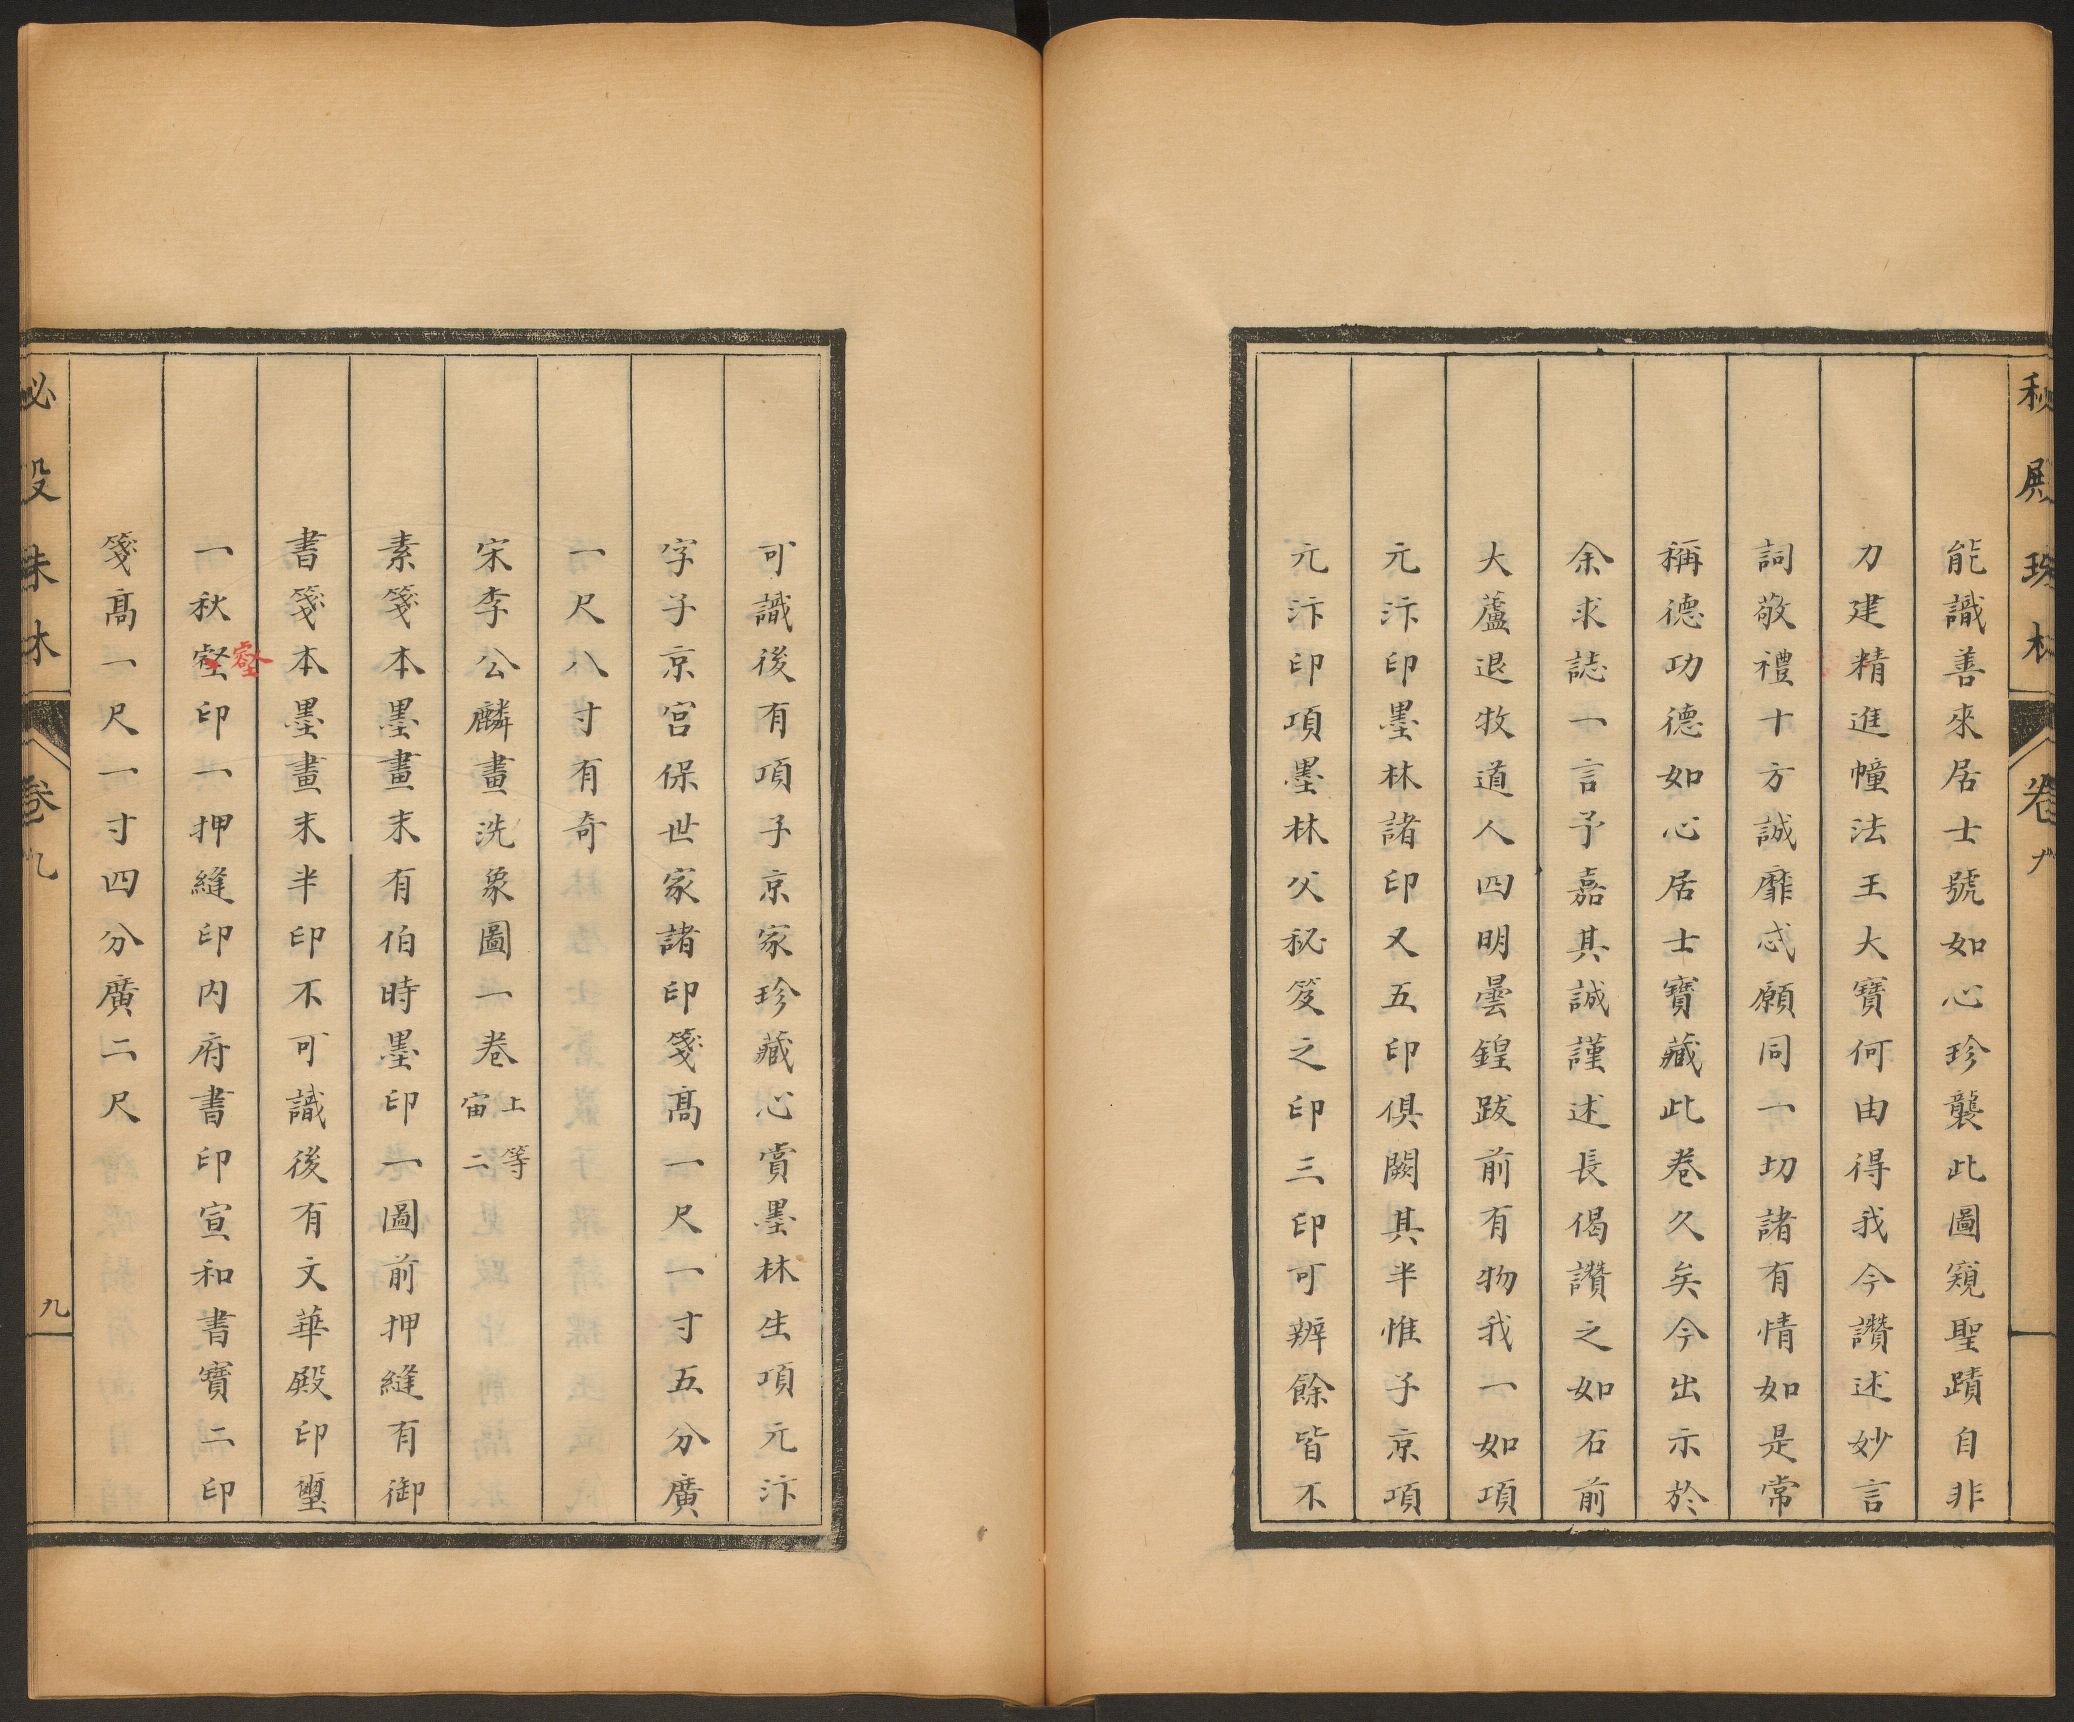 秘殿珠林 卷九
能識善來居士號如心珍襲此圖窺聖蹟自非
力建精進幢法王大寶何由得我今讚述妙言
詞敬禮十方誠靡忒願同一切諸有情如是常
稱德功德如心居士寶藏此卷久矣今出示於
余求誌一言予嘉其誠謹述長偈讚之如右前
大蘆退牧道人四明曇鍠跋前有物我一如項
元汴印墨林諸印又五印俱闕其半惟子京項
元汴印項墨林父秘笈之印三印可辨餘皆不
可識後有項子京家珍藏心賞墨林生項元汴
字子京宮保世家諸印箋高一尺一寸五分廣
一尺八寸有奇
宋李公麟畫洗象圖一卷 上等 宙二
素箋本墨畫末有伯時墨印一圖前押縫有御
書箋本墨畫末半印不可識後有文華殿印璽
一秋壑印一押縫印內府書印宣和書寶二印
壑
箋高一尺一寸四分廣二尺
秘殿珠林 卷九 九